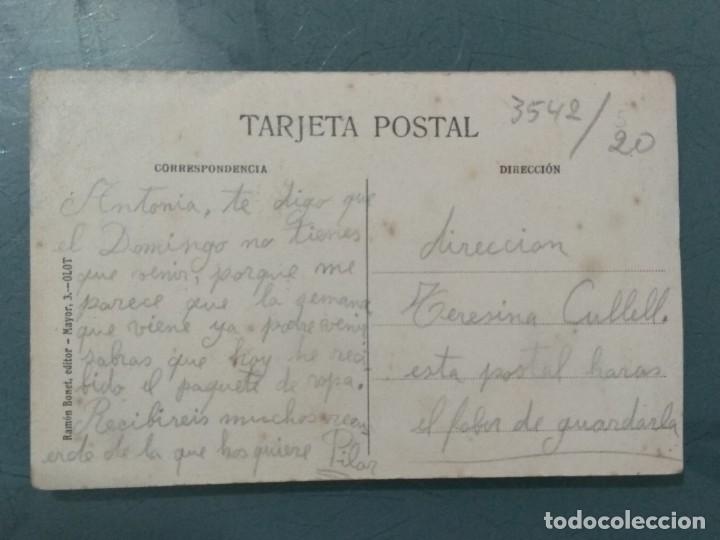 3542/20
TARJETA POSTAL
CORRESPONDENCIA
DIRECCIÓN
Ramón Bonet, editor - Mayor, 3.-OLOT
Antonia, te digo que
el Domingo no tienes
que venir, porque me
parece que la semana
que viene ya podre venir
sabras que hoy he reci
bido el paquete de ropa.
Recibireis muchos recu
erdo de la que hos quiere Pilar
direccion
Teresina Cullell.
esta postal haras
el fabor de guardarla
todocoleccion
todocoleccion.net